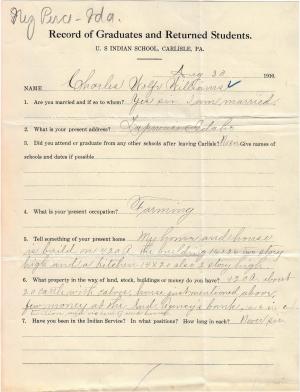 Nez Perce - Ida.
Record of Graduates and Returned Students.
U. S INDIAN SCHOOL, CARLISLE, PA.
Aug 30 1910.
NAME Charles Wolfe Williams
1. Are you married and if so to whom? Yes sir I am married
2. What is your present address? Idaho
3. Did you attend or graduate from any other schools after leaving Carlisle? None Give names of
schools and dates if possible
4. What is your present occupation? Farming
5. Tell something of your present home My home and house
is build on 420A. the building 14x26 two story
high and a kitchen 14x20 also 2 story high.
6. What property in the way of land, stock, buildings or money do you have? 420A about
20 cattle with above, house just mentioned above,
few money at the Ind. Agency's bank,
7. Have you been in the Indian Service? In what positions? How long in each? Never sir